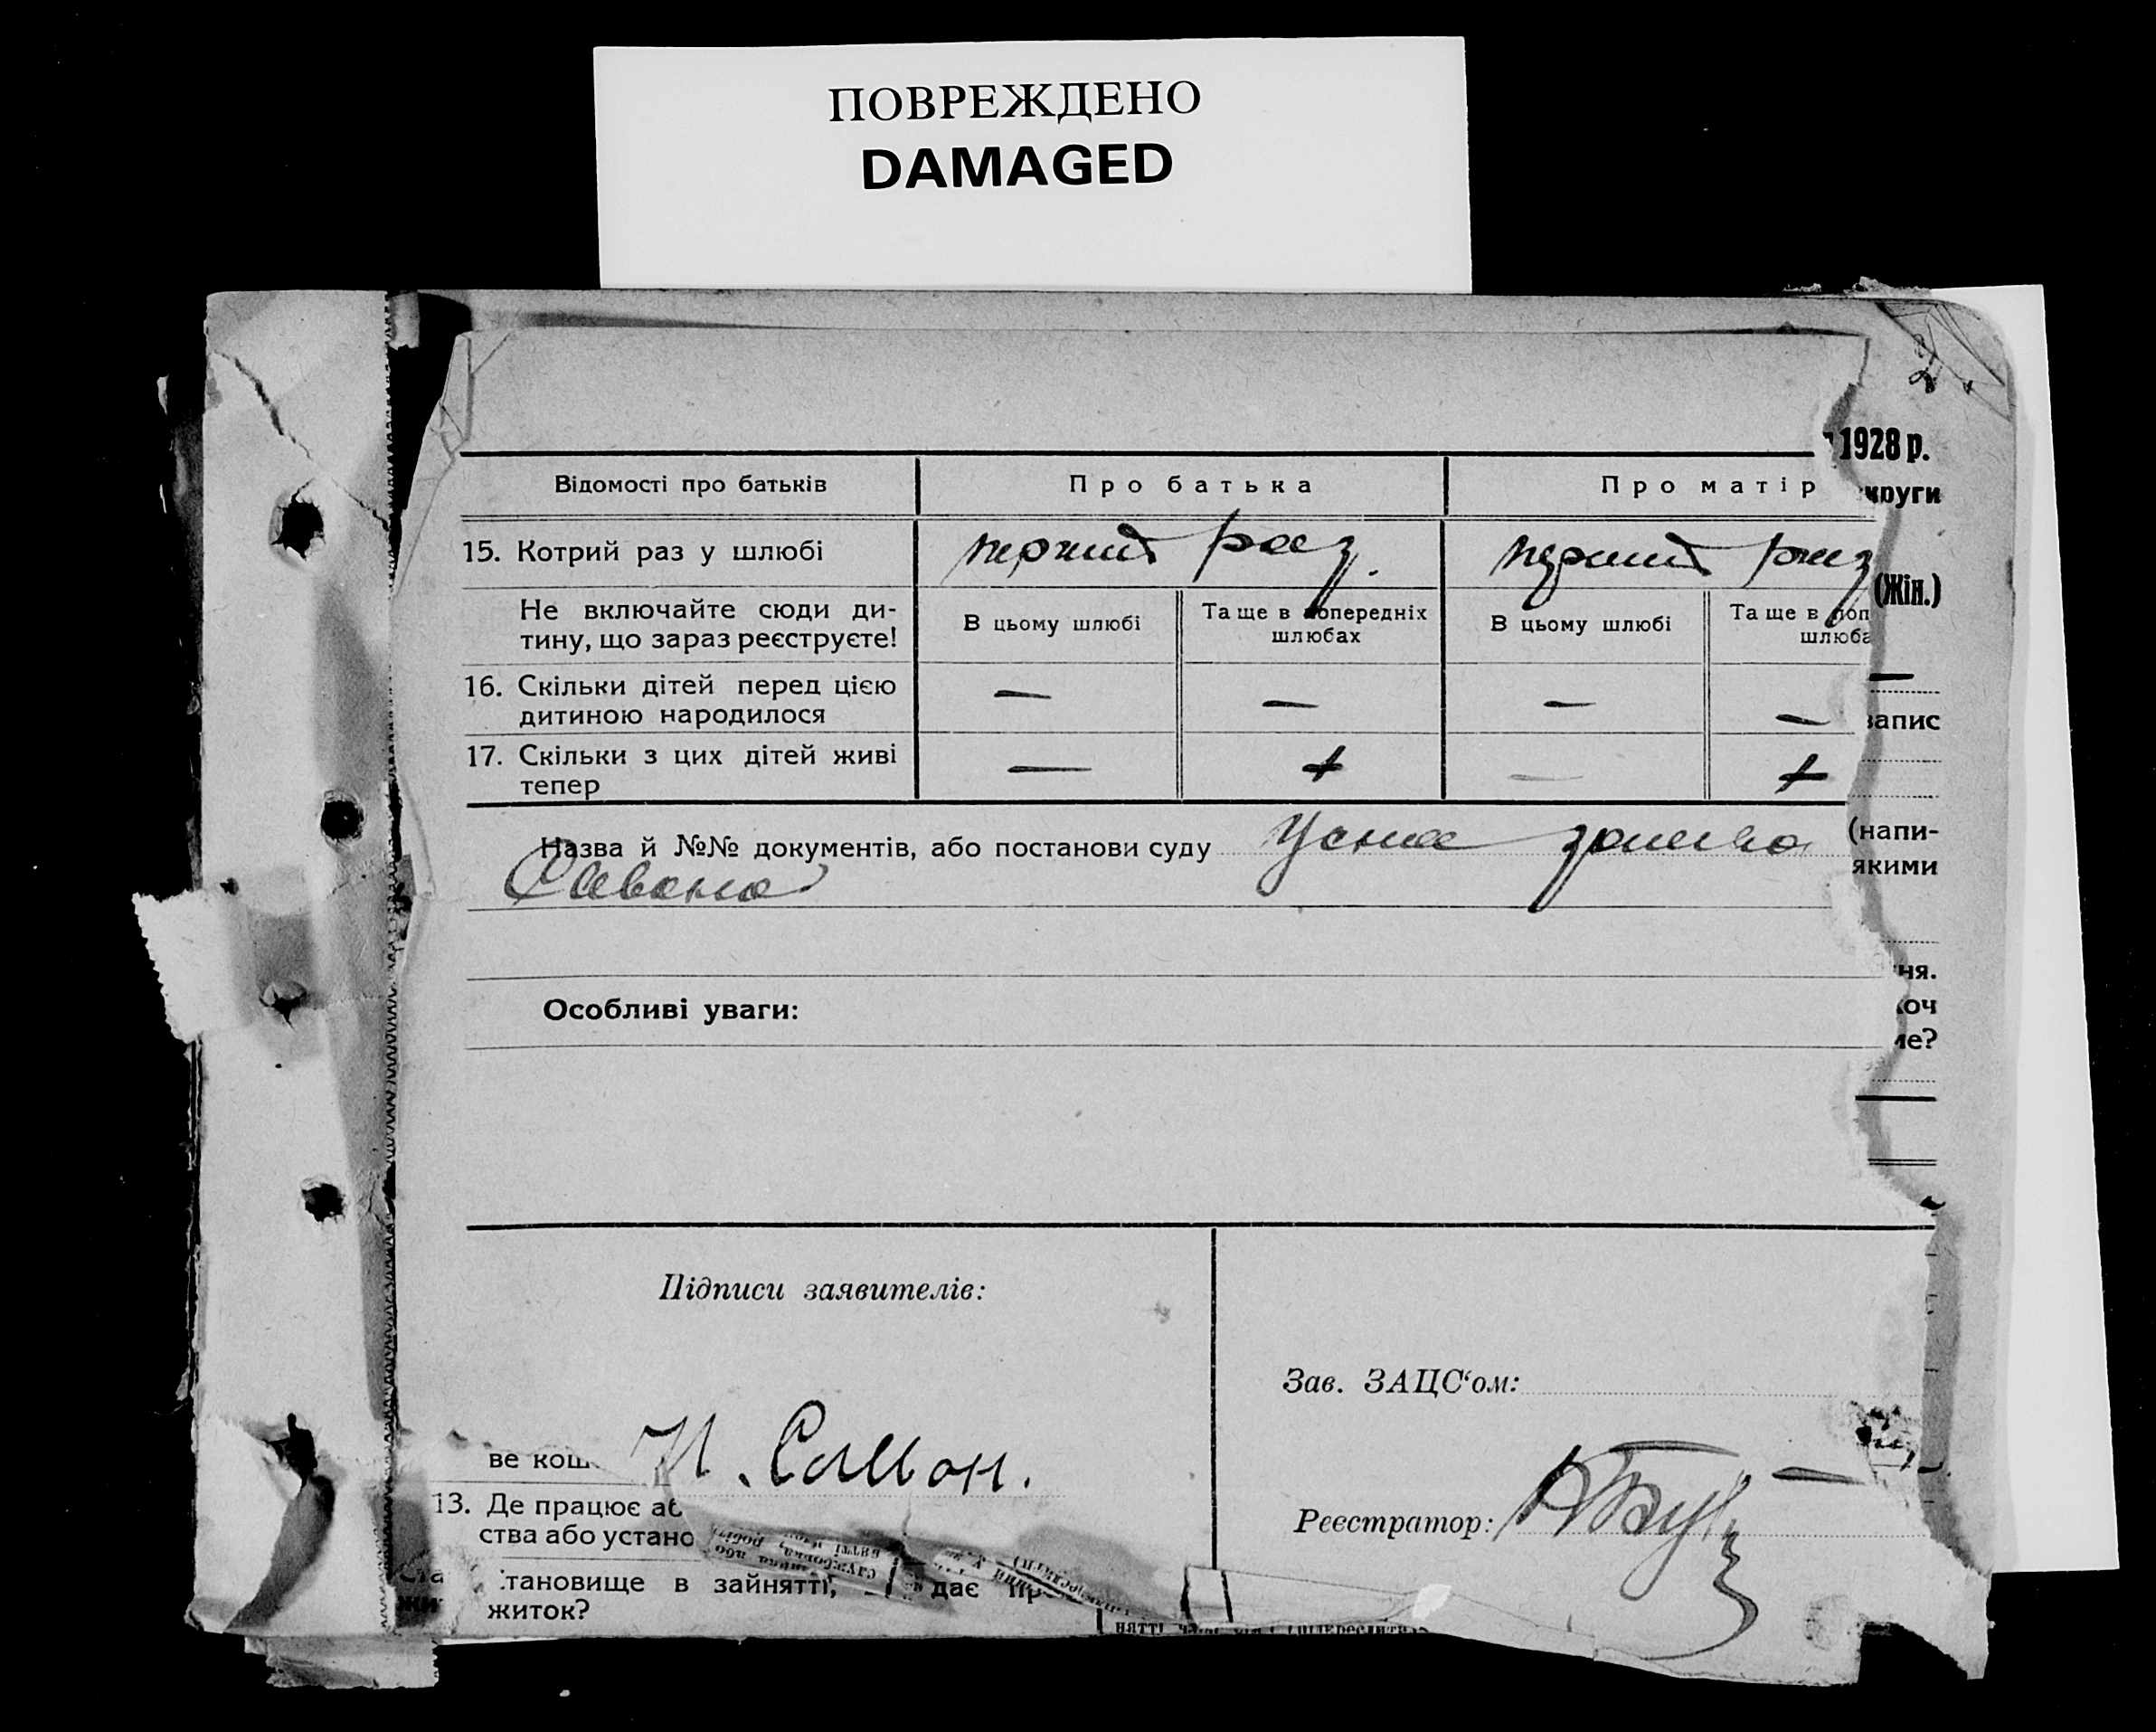 ПОВРЕЖДЕНО
DAMAGED
2
1928 р.
круги
(Жін.)
Відомості про батьків
Про батька
Про матір
15. Котрий раз у шлюбі
перший раз.
перший раз
Не включайте сюди ди-
тину, що зараз реєструєте!
В цьому шлюбі
Та ще в попередніх
шлюбах
В цьому шлюбі
Та ще в поп
шлюба
16. Скільки дітей перед цією
дитиною народилося
— — — —
запис
17. Скільки з цих дітей живі
тепер
— + — +
Назва й №№ документів, або постанови суду Усна заява
(напи-
якими
ня.
Особливі уваги:
хоч
ме?
Підписи заявителів:
Зав. ЗАЦС‘ом:
ве кош
Реєстратор:
13. Де працює аб
ства або устано
тановище в зайнятті,
дає пр
житок?